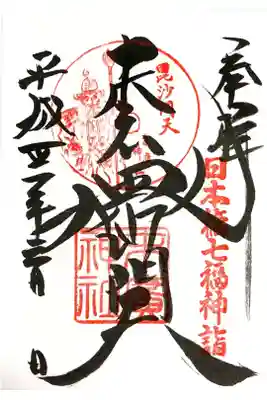 奉拝
日本橋七福神詣
毘沙門天
末廣
毘沙門天
末廣
神社
平成
年
月
日